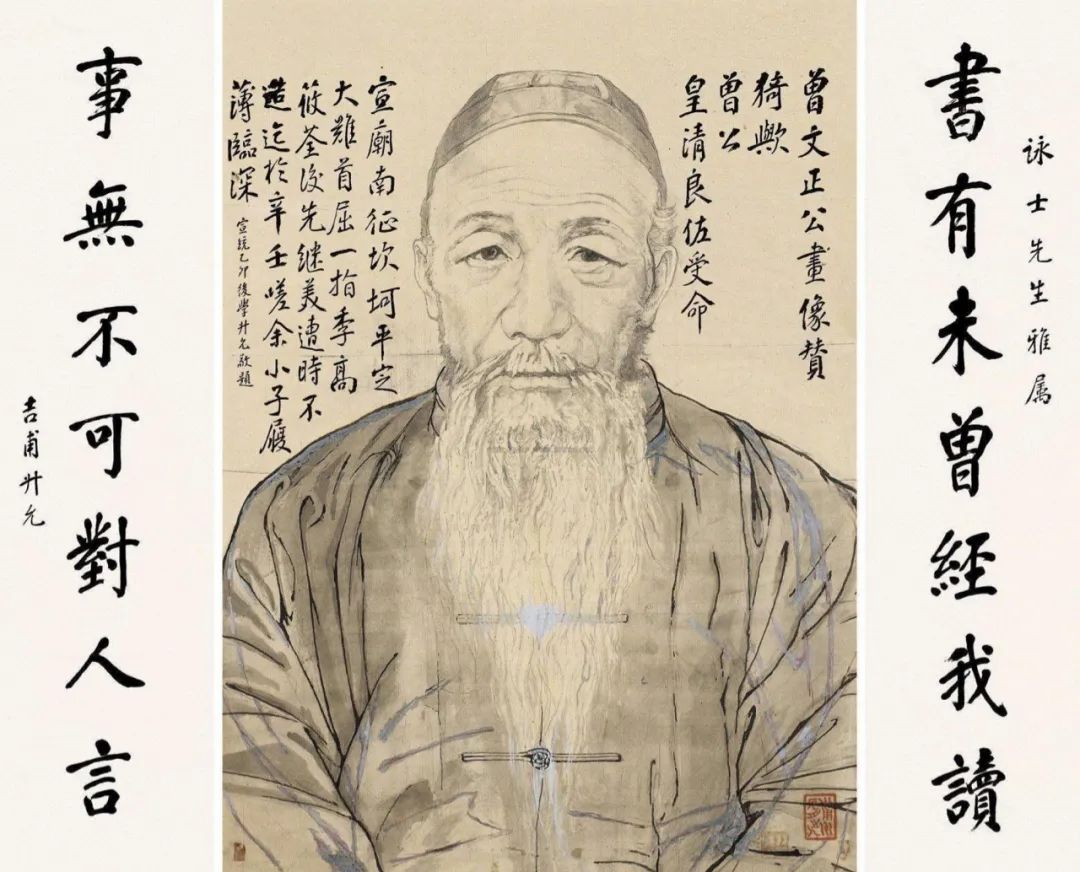 詠士先生雅属
書有未曾經我讀
曾文正公畫像贊
猗歟
曾公
皇清良佐受命
宣廟南征坎坷平定
大難首屈一指季高
筱荃後先繼美遭時不
造迄於辛壬嗟余小子履
薄臨深
宣統乙卯後學升允敬題
事無不可對人言
吉甫升允